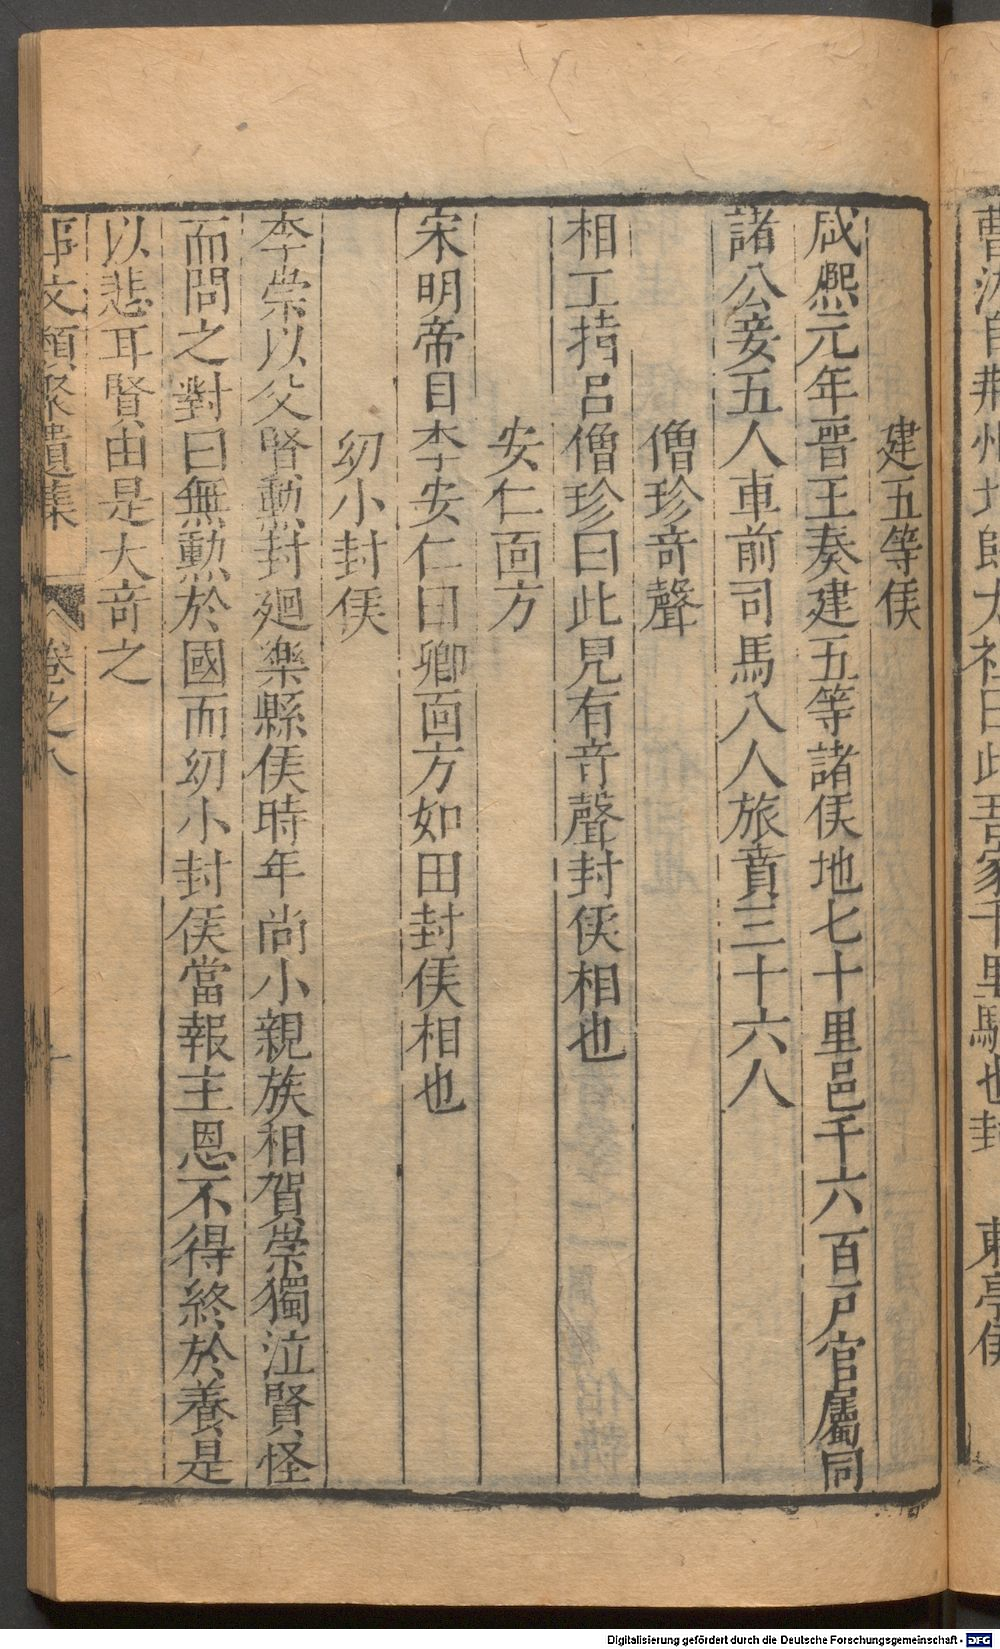 曹洪自荆州北歸太祖曰此吾家千里駒也封 東亭侯
建五等侯
咸熙元年晉王奏建五等諸侯地七十里邑千六百戸官屬同
諸公妾五人車前司馬八人旅賁三十六人
僧珍竒聲
相工揹呂僧珍曰此兒有竒聲封侯相也
安仁面方
宋明帝目李安仁曰卿面方如田封侯相也
㓜小封侯
李崇以父賢勳封廻樂縣侯時年尚小親族相賀崇獨泣賢怪
而問之對曰無勳於國而㓜小封侯當報主恩不得終於養是
以悲耳賢由是大竒之
事文類聚遺集 卷之八 十
Digitalisierung gefördert durch die Deutsche Forschungsgemeinschaft - DFG